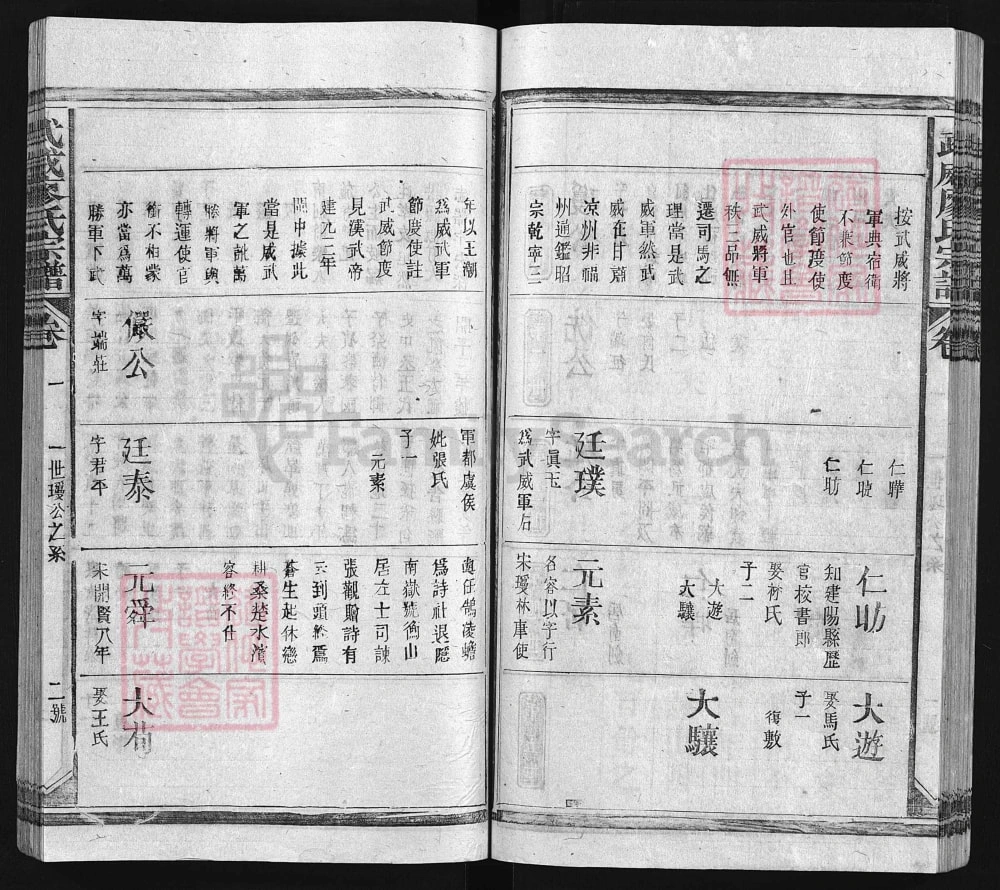 按武威將
軍典宿衛
不兼節度
使節度使
外官也且
武威將軍
秩三品無
遷司馬之
理當是武
威軍然武
威在甘肅
凉州非福
州通鑑昭
宗乾寧三
仁曄
仁䀶
仁昉
廷璞
字眞玉
爲武威軍石
仁助
知建陽縣歷
官校書郎
娶衛氏
子二
大遊
大驤
元素
名容以字行
宋瓊林庫使
大遊
娶馬氏
子一
復敷
大驤
年以王潮
爲威武軍
節度使註
武威節度
見漢武帝
建元二年
閩中據此
當是威武
軍之訛萬
勝將軍與
轉運使官
銜不相蒙
亦當爲萬
勝軍下武
儼公
字端莊
軍都虞侯
妣張氏
子一
元素
廷泰
字君平
與任鵠凌蟾
爲詩社退隱
南嶽號衡山
居左士司諫
張觀贈詩有
云到頭終爲
蒼生起休戀
耕桑楚水濱
召終不仕
元舜
宋開寶八年
大有
娶王氏
武威廖氏宗譜
卷
一
一世瑗公之系
二號
武威廖氏宗譜
卷
FamilySearch